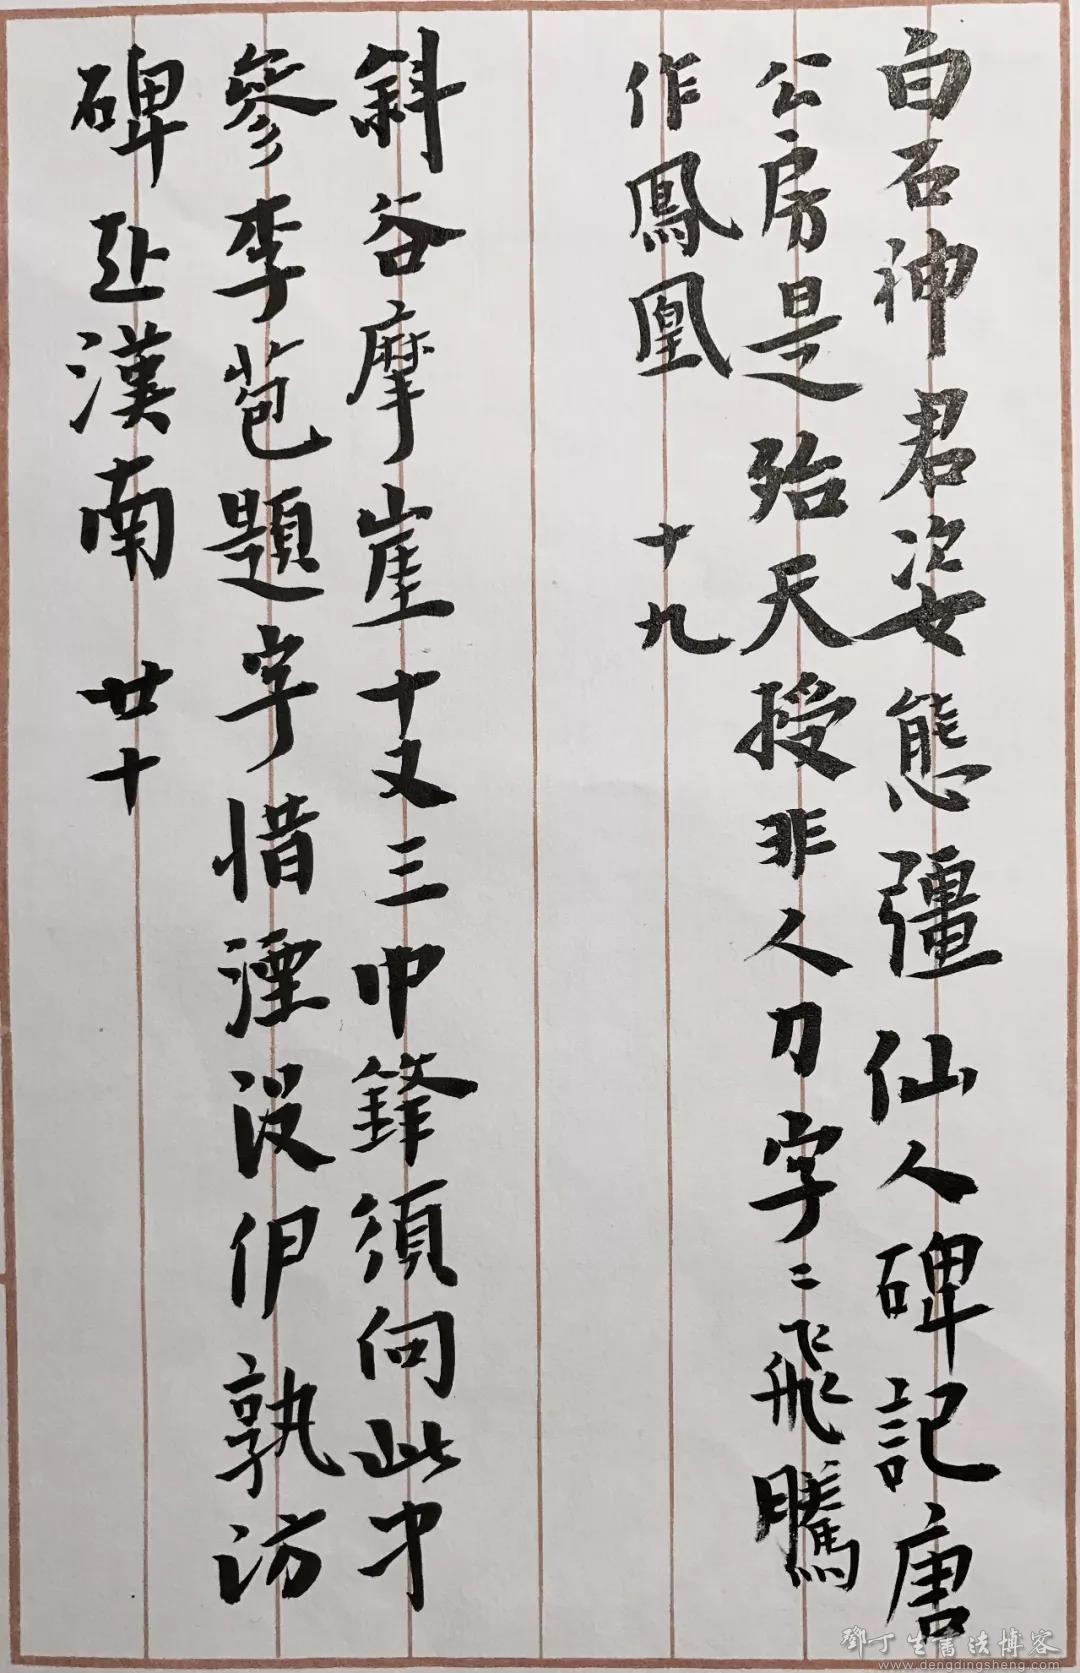 白石神君姿態彊仙人碑記唐
公房是殆天授非人刀字〻飛騰
作鳳凰 十九
斜谷摩崖十又三中鋒須向此中
參李苞題字惜湮没伊孰訪
碑赴漢南 廿十
鄧丁生書法博客
www.dengdingsheng.com